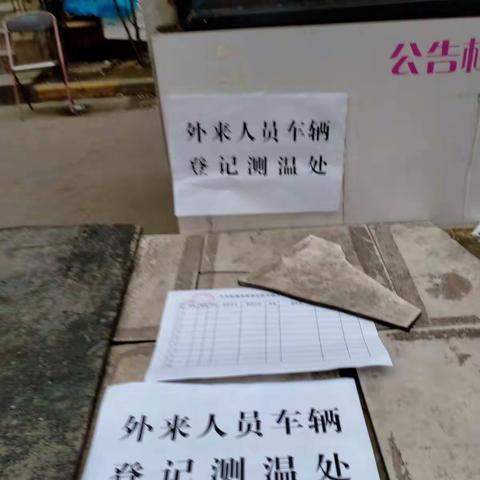 公告
外来人员车辆
登记测温处
外来人员车辆
登记测温处